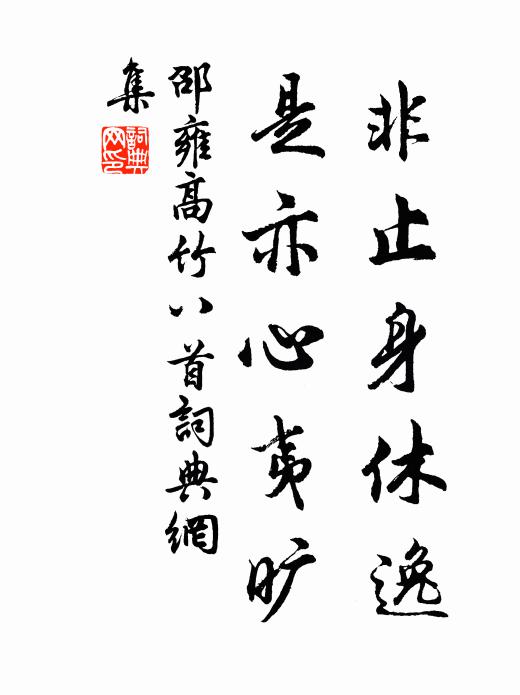 非止身休逸
是亦心夷旷
邵雍高竹八首詞典網
集
詞典网印